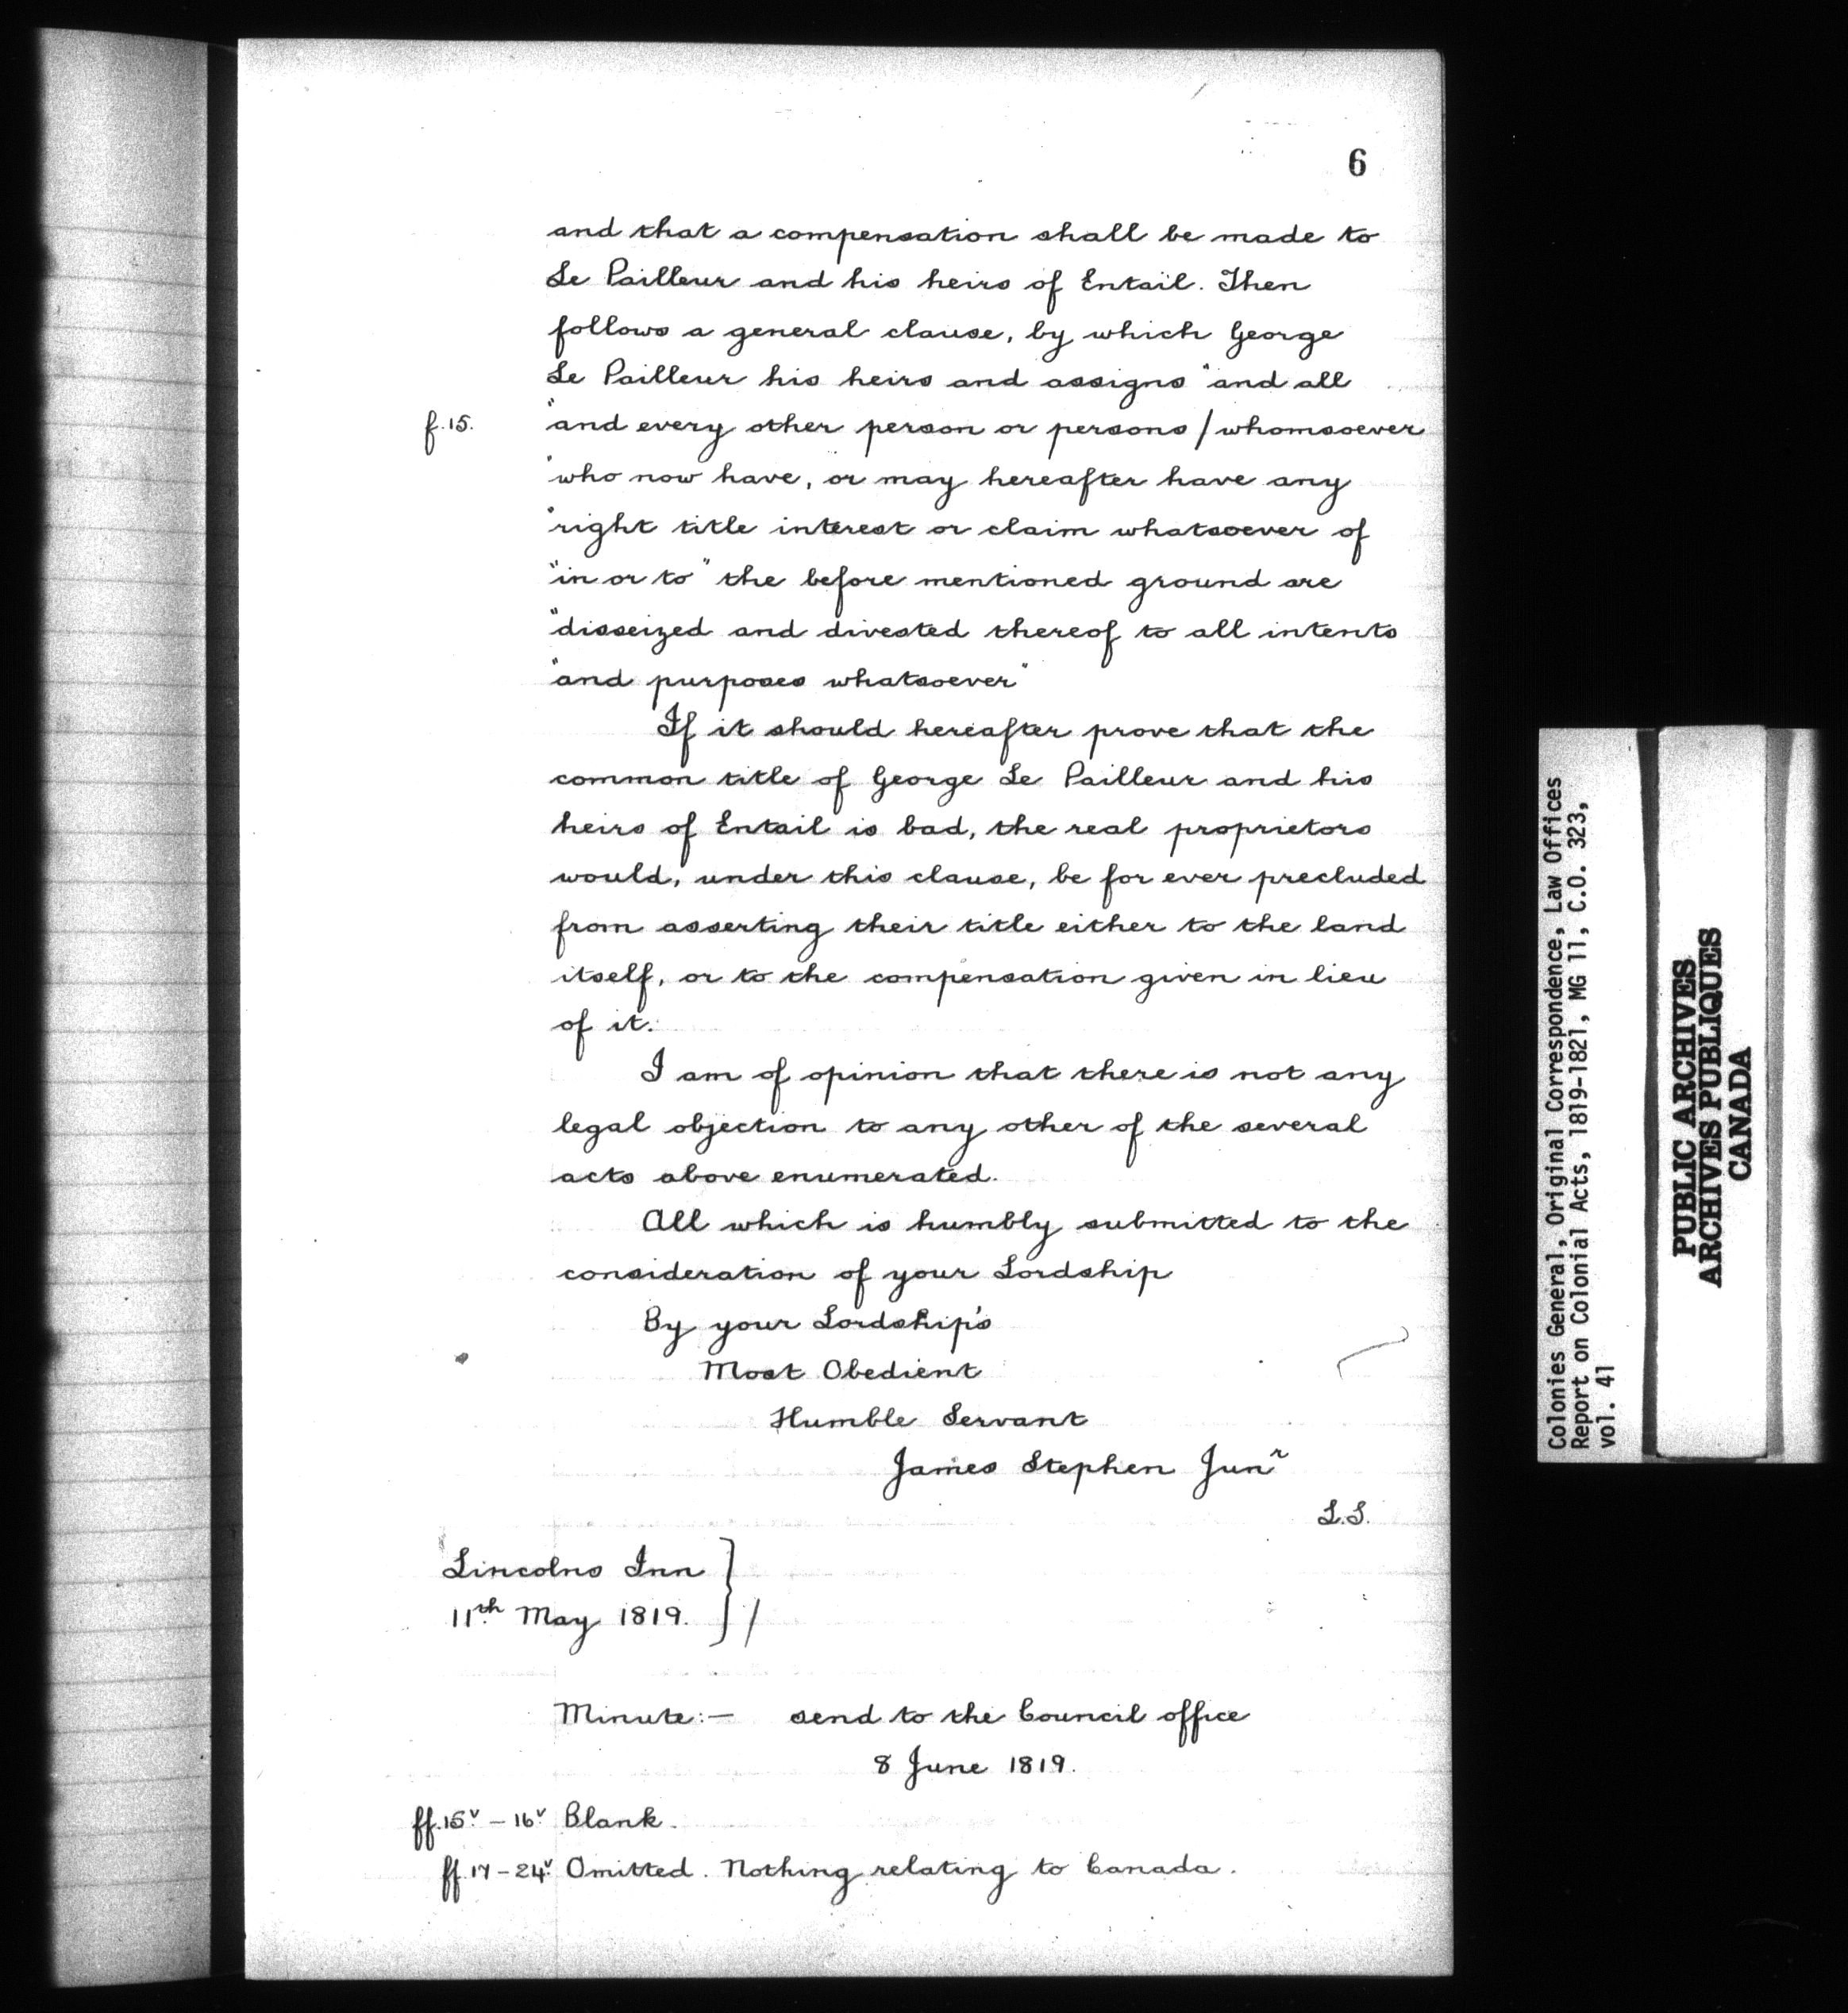 6
and that a compensation shall be made to
Le Pailleur and his heirs of Entail. Then
follows a general clause, by which George
Le Pailleur his heirs and assigns "and all
f.15. "and every other person or persons / whomsoever
"who now have, or may hereafter have any
"right title interest or claim whatsoever of
"in or to" the before mentioned ground are
"disseized and divested thereof to all intents
"and purposes whatsoever"
If it should hereafter prove that the
common title of George Le Pailleur and his
heirs of Entail is bad, the real proprietors
would, under this clause, be for ever precluded
from asserting their title either to the land
itself, or to the compensation given in lieu
of it.
I am of opinion that there is not any
legal objection to any other of the several
acts above enumerated.
All which is humbly submitted to the
consideration of your Lordship
By your Lordship's
Most Obedient
Humble Servant
James Stephen Junr
L.S.
Lincolns Inn
11th May 1819.
Minute:— send to the Council office
8 June 1819.
ff.15v – 16v Blank.
ff.17 – 24v Omitted. Nothing relating to Canada.
Colonies General, Original Correspondence, Law Offices
Report on Colonial Acts, 1819-1821, MG 11, C.O. 323,
vol. 41
PUBLIC ARCHIVES
ARCHIVES PUBLIQUES
CANADA